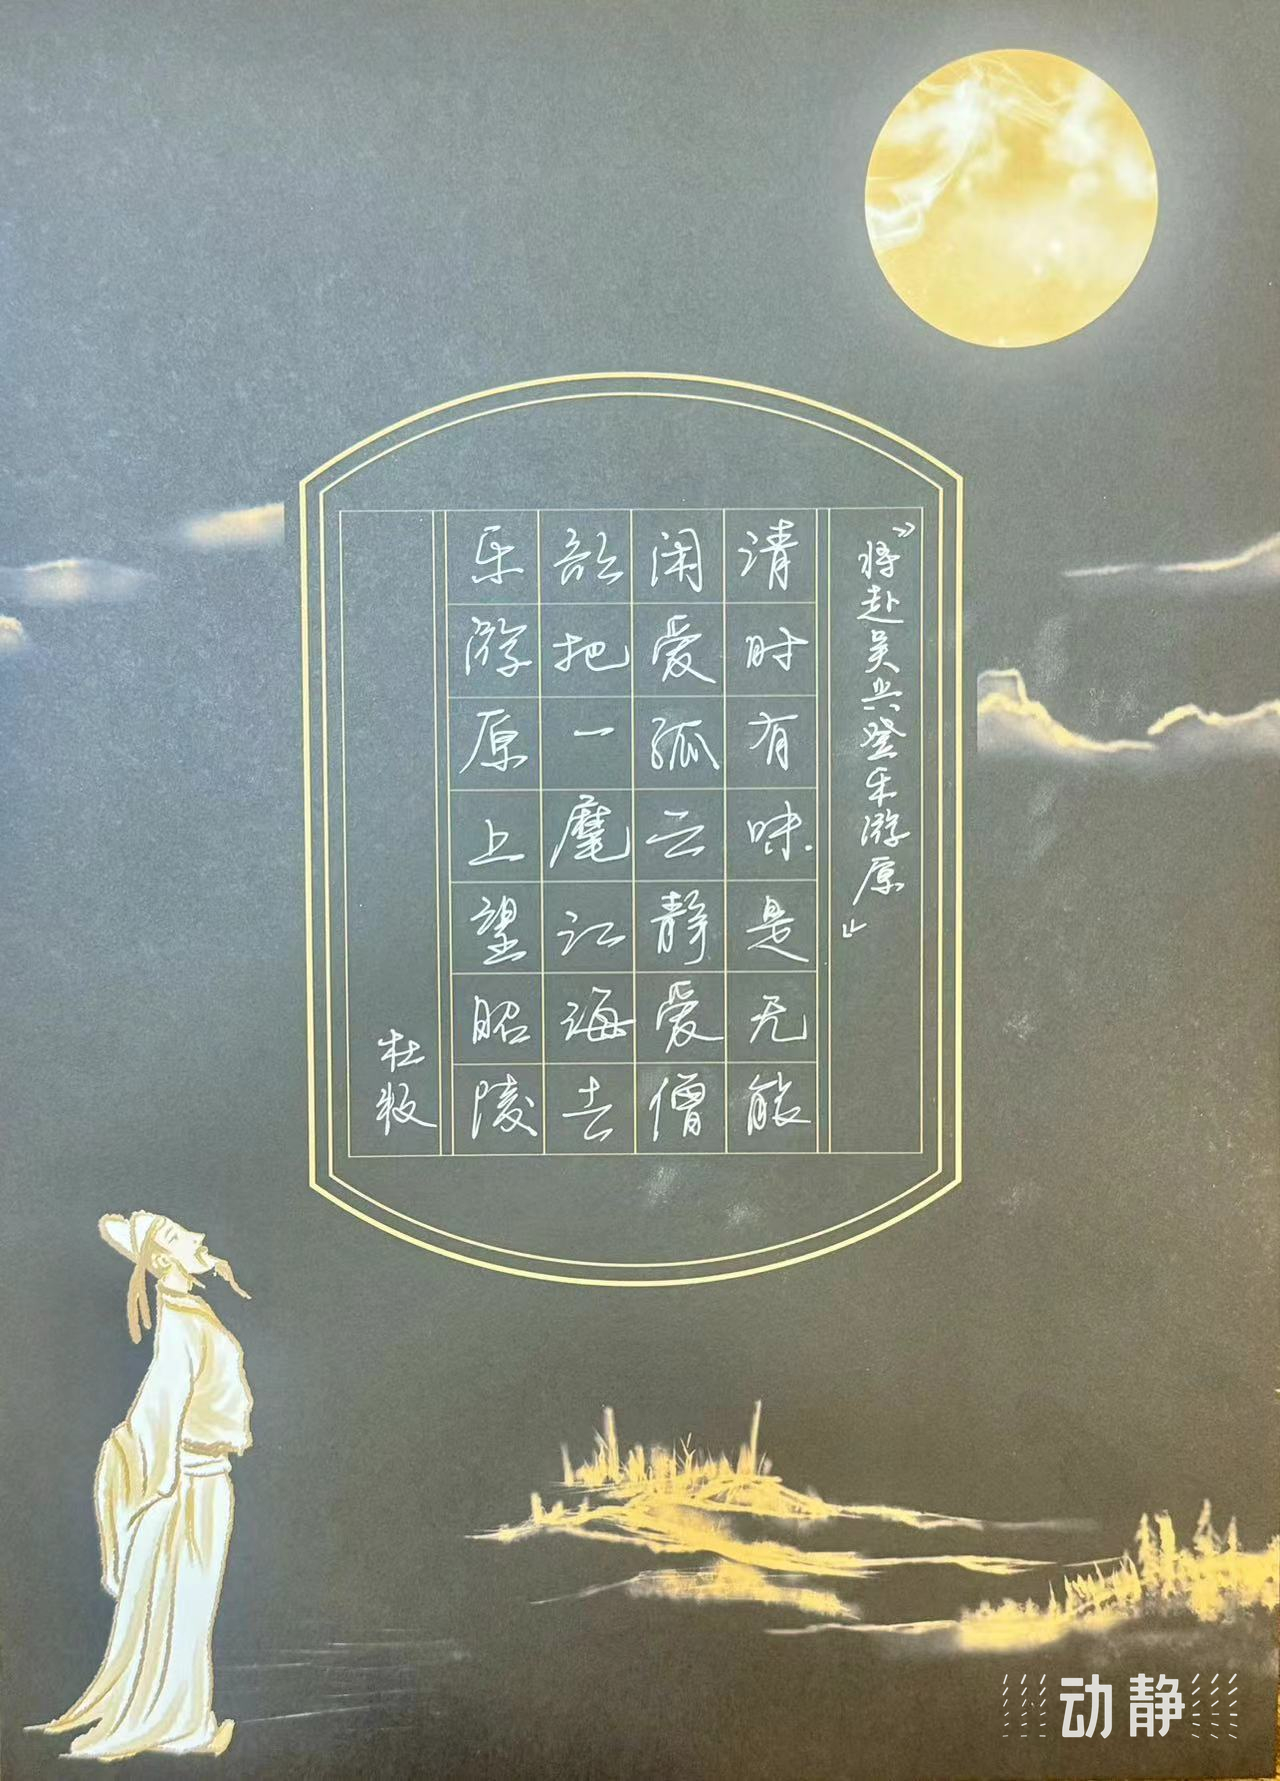 《将赴吴兴登乐游原》
清时有味是无能
闲爱孤云静爱僧
欲把一麾江海去
乐游原上望昭陵
杜牧
动静